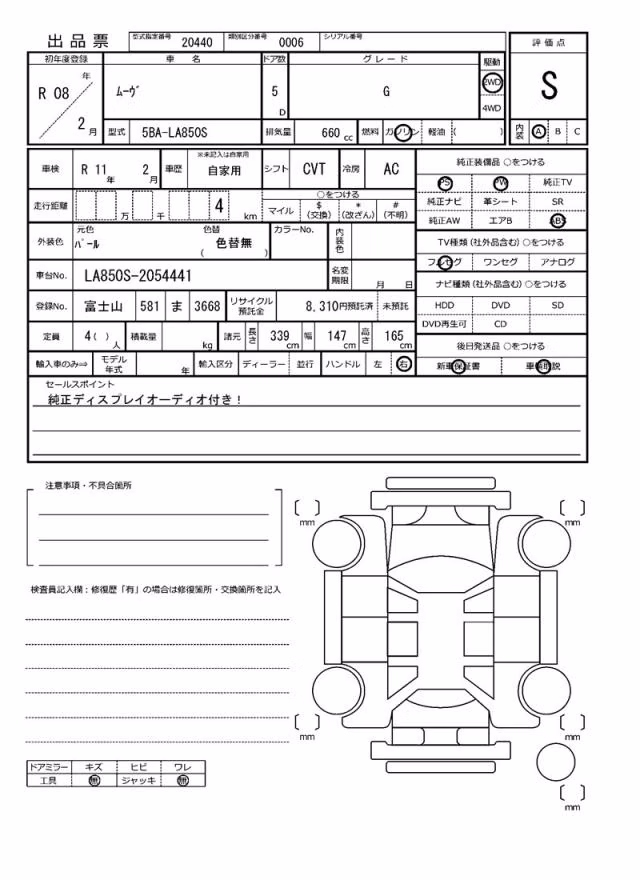 出品票 型式指定番号 20440 類別区分番号 0006 シリアル番号
初年度登録 車 名 ドア数 グレード 駆動 評価点
R 08 年 2 月 ムーヴ 5 D G 2WD 4WD S
型式 5BA-LA850S 排気量 660 cc 燃料 ガソリン 軽油 ( ) 内装 A B C
車検 R 11 年 2 月 車歴 ※未記入は自家用 自家用 シフト CVT 冷房 AC
走行距離 万 千 4 km ○をつける マイル $ (交換) * (改ざん) # (不明)
外装色 元色 パール 色替 色替無 ( ) カラーNo. 内装色
車台No. LA850S-2054441 名変期限 月 日
登録No. 富士山 581 ま 3668 リサイクル預託金 8,310円預託済 未預託
定員 4( ) 人 積載量 kg 諸元 長さ 339 cm 幅 147 cm 高さ 165 cm
輸入車のみ⇒ モデル年式 年 輸入区分 ディーラー 並行 ハンドル 左 右
純正装備品 ○をつける
PS PW 純正TV
純正ナビ 革シート SR
純正AW エアB ABS
TV種類 (社外品含む) ○をつける
フルセグ ワンセグ アナログ
ナビ種類 (社外品含む) ○をつける
HDD DVD SD
DVD再生可 CD
後日発送品 ○をつける
新車保証書 車輌取説
セールスポイント
純正ディスプレイオーディオ付き!
注意事項・不具合箇所
検査員記入欄:修復歴「有」の場合は修復箇所・交換箇所を記入
ドアミラー キズ ヒビ ワレ
工具 無 ジャッキ 無
mm
mm
mm
mm
mm